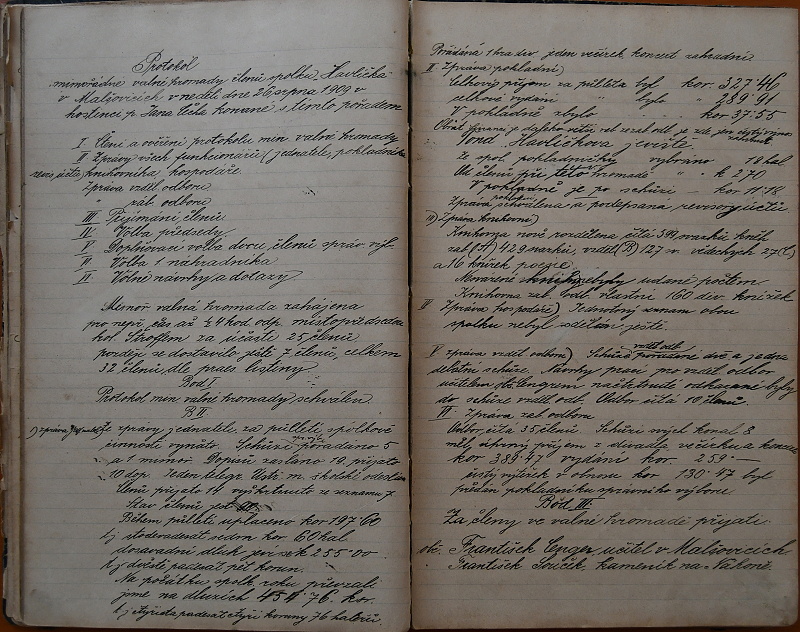 Protokol
mimořádné valné hromady členů spolku Havlíčka
v Malšovicích v neděli dne 26 srpna 1909 v
hostinci p. Jana Léha konané s tímto pořadem
I Čtení a ověření protokolu min valné hromady
II Zprávy všech funkcionářů (jednatele, pokladníka
revis. účtů, knihovníka hospodáře.
Zpráva vzděl odboru
" zab. odboru
III Přijímání členů
IV Volba předsedy
V Doplňovací volba dvou členů správ výb.
II Volba 1 náhradníka
II Volné návrhy a dotazy
Mimoř valná hromada zahájena
pro nepř. čas až ¼ 4 hod odp. místopředsedou
kol. Stroflem za účasti 25 členů
později se dostavilo ještě 7 členů, celkem
32 členů, dle praes listiny
Bod I
Protokol min valné hromady schválen
B II.
1) zpráva jednatele) Ze zprávy jednatele za půlletí spolkové
činnosti vynato. Schůzí pořádáno 5
a 1 mimoř. Dopisů zasláno 19. přijato
10 dop. Jeden telegr. Ústř. m. školské odeslán
Členů přijato 14 vyškrtnuto ze seznamu 7
Stav členů jest
Během půlletí uplaceno kor 197·60
tj stodevadesát sedm kor 60 hal
dosavadní dluh jeví se k 255·00
t.j dvěstě padesát pět korun.
Na počátku spolk roku převzali
jsme na dluzích 454 76. kor.
tj čtyřista padesát čtyři koruny 76 haléřů.
Pořádána 1 hra div jeden večírek, koncert zahradní
II Zpráva pokladní)
Celkový příjem za půlléta byl kor. 327·46
celkové vydání " bylo " 289·91
V pokladně zbylo kor 37·55
Fond Havlíčkova jeviště.
Ze spol. pokladničky vybráno 18 hal
Od členů při této hromadě " k 2·70
V pokladně je po schůzi — kor 11·18
Zpráva schválena a podepsána revisory účtů.
Zpráva knihovní)
Knihovna nově rozdělena čítá svazků knih
zab (A) 429 svazků, vzděl (B) 127 sv. vědeckých 27 (C)
a 16 knížek poesie
nebyly udané počtem
Knihovna zab. odb. vlastní 160 div. knížek
IV Zpráva hospodáře) Jednotný seznam obou
spolku nebyl sdělán ještě.
V zpráva vzděl odboru) Schůze vzděl odb. pořádané dvě a jedna
debatní schůze. Návrhy prací pro vzděl odbor
učitelem ob. Cengrem načrtnuté odkázané byly
do schůze vzděl odb. Odbor čítá 10 členů.
VI Zpráva zab. odboru
Odbor čítá 35 členů. Schůzí svých konal 8
měl úhrnný příjem z divadla večírku a koncertu
kor 389·47 vydání kor. 259·—
čistý výtěžek v obnosu kor 130·47 byl
předán pokladníku správního výboru
Bod III.
Za členy ve valné hromadě přijati.
ob. František Cenger, učitel v Malšovicích
František Souček, kameník na Nákoně